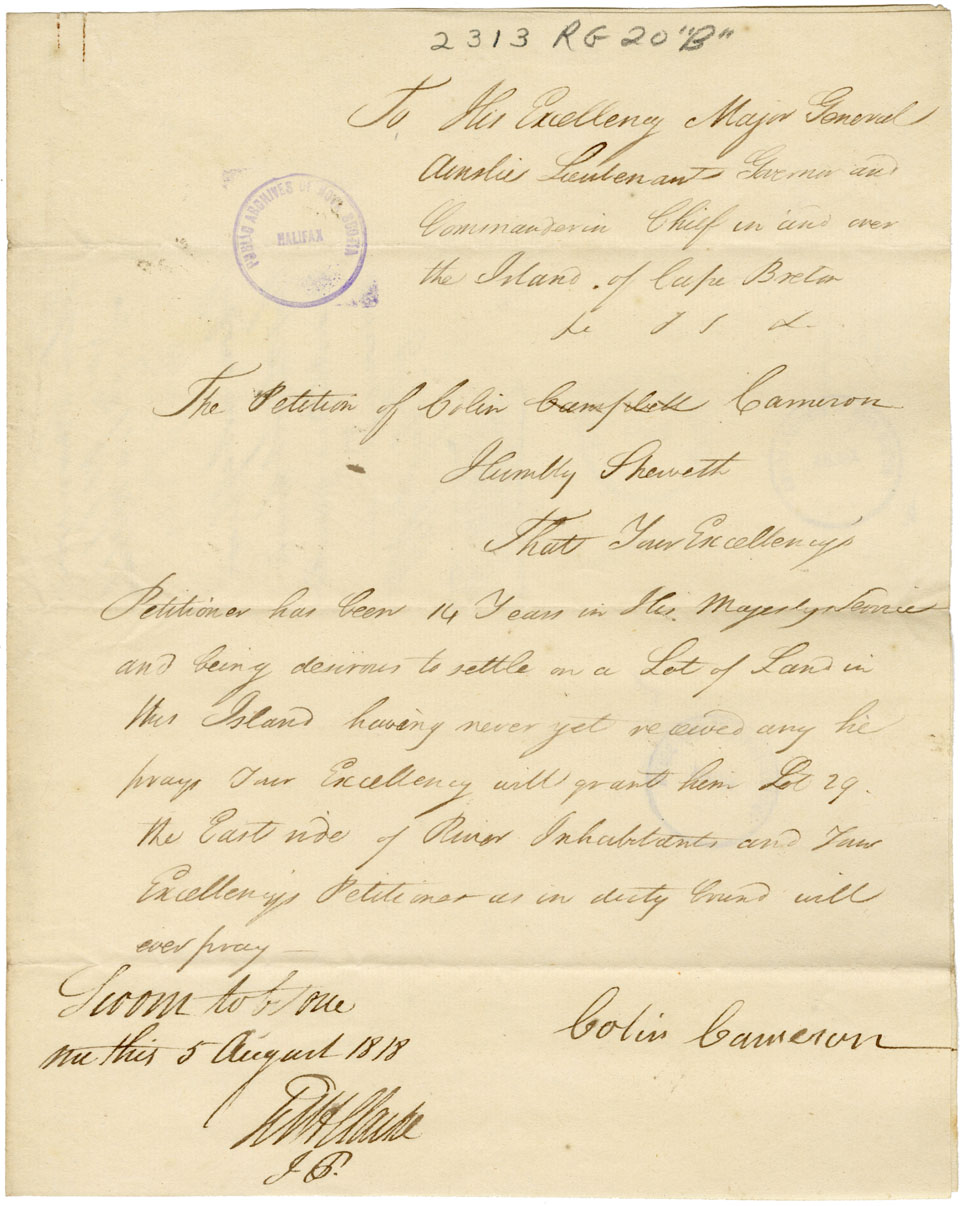 2313 RG 20 "B"
To His Excellency Major General
Ainslie Lieutenant Governor and
Commander in Chief in and over
the Island of Cape Breton
PUBLIC ARCHIVES OF NOVA SCOTIA
HALIFAX
The Petition of Colin Campbell Cameron
Humbly Sheweth
That Your Excellencys
Petitioner has been 14 Years in His Majestys Service
and being desirous to settle on a Lot of Land in
this Island having never yet received any he
prays Your Excellency will grant him Lot 29.
the East side of River Inhabitants and Your
Excellencys Petitioner as in duty bound will
ever pray —
Sworn to before
me this 5 August 1818
Colin Cameron
Clarke
J P.